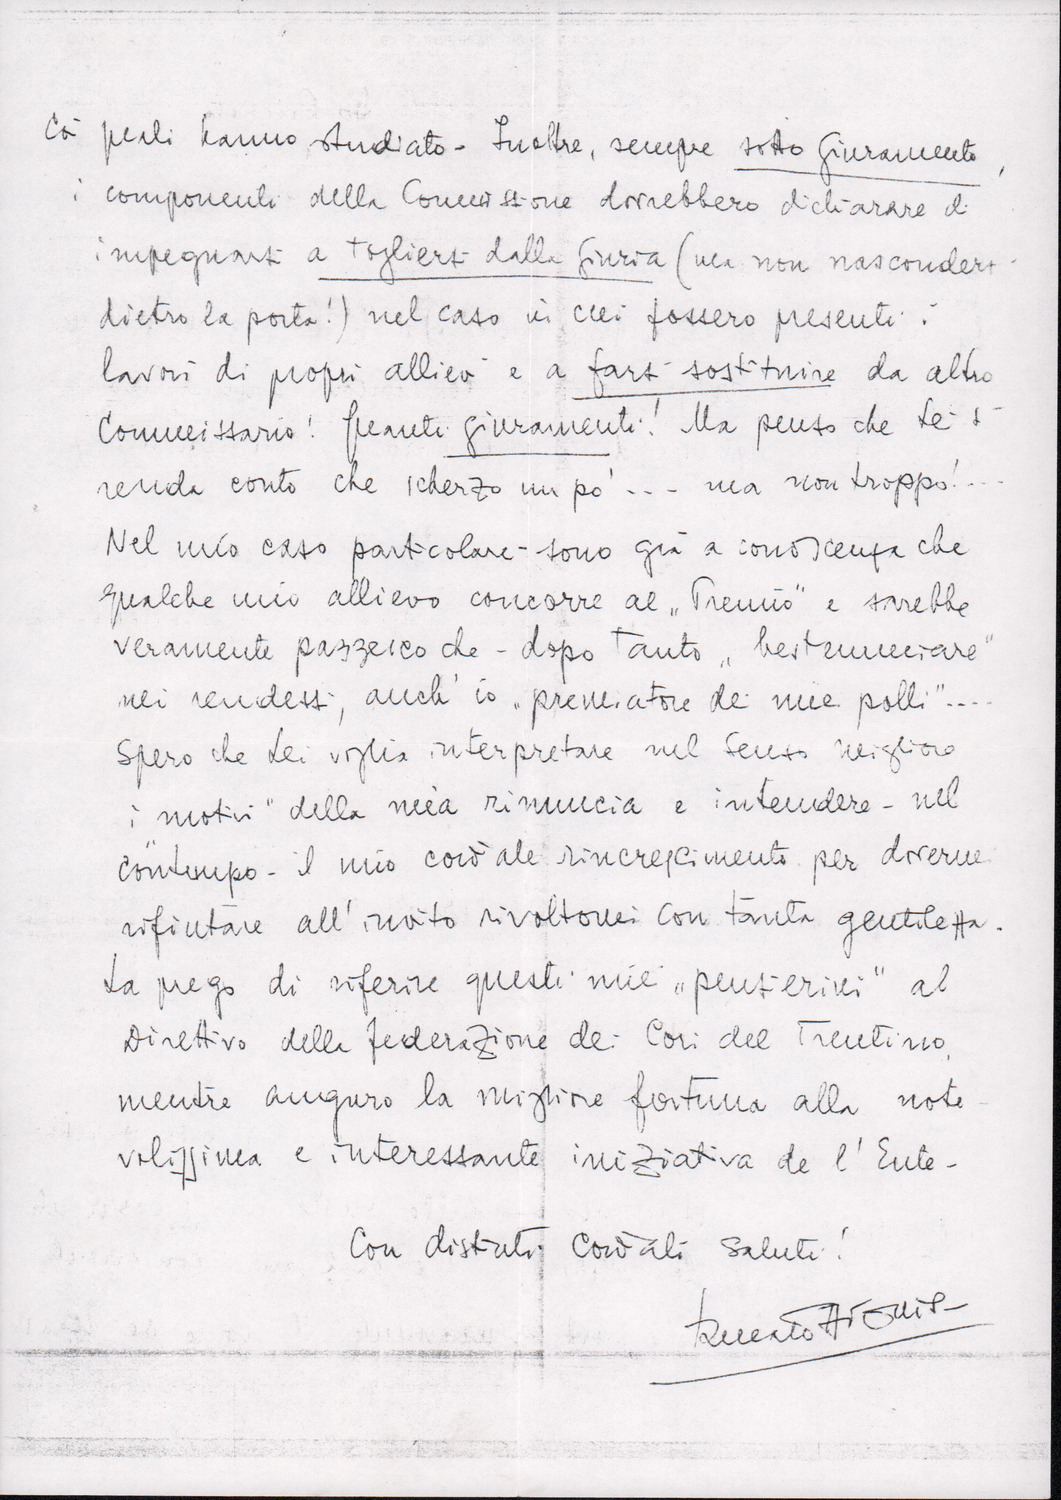 coi quali hanno studiato - Inoltre, sempre sotto giuramento,
i componenti della Commissione dovrebbero dichiarare di
impegnarsi a togliersi dalla Giuria (ma non nascondersi
dietro la porta!) nel caso in cui fossero presenti i
lavori di propri allievi e a farsi sostituire da altro
Commissario! Quanti giuramenti! Ma penso che Lei si
renda conto che scherzo un po' --- ma non troppo! ---
Nel mio caso particolare - sono già a conoscenza che
qualche mio allievo concorre al „Premio" e sarebbe
veramente pazzesco che - dopo tanto „bestemmiare"
mi rendessi, anch' io „premiatore dei miei polli" ----
Spero che Lei voglia interpretare nel senso migliore
i "motivi" della mia rinuncia e intendere - nel
contempo - il mio cordiale rincrescimento per doverne
rifiutare all' invito rivoltomi con tanta gentilezza.
La prego di riferire questi miei „pensierini" al
Direttivo della Federazione dei Cori del Trentino,
mentre auguro la migliore fortuna alla note-
volissima e interessante iniziativa de l' Ente -
Con distinti cordiali saluti!
Renato Dionisi